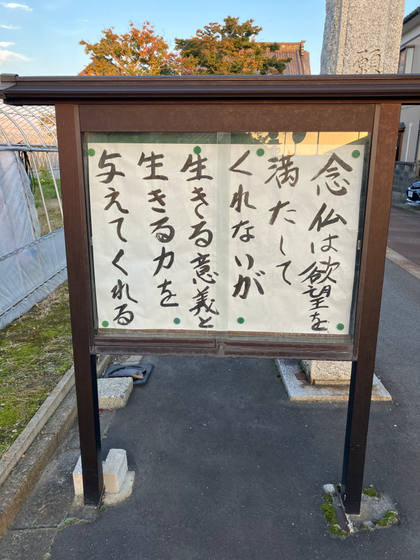 念仏は欲望を
満たして
くれないが
生きる意義と
生きる力を
与えてくれる
願